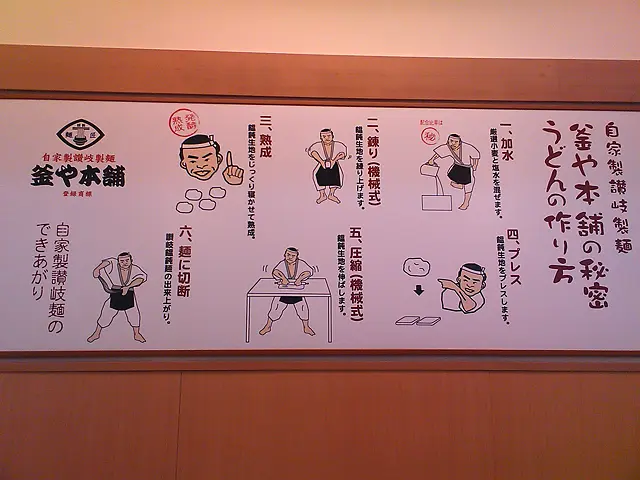 自家製讃岐製麺
釜や本舗の秘密
うどんの作り方
一、加水
厳選小麦と塩水を混ぜます。
秘
二、練り(機械式)
饂飩生地を練り上げます。
三、熟成
饂飩生地をじっくり寝かせて熟成。
発酵
熟成
四、プレス
饂飩生地をプレスします。
五、圧縮(機械式)
饂飩生地を伸ばします。
六、麺に切断
讃岐饂飩麺の出来上がり。
自家製讃岐麺の
できあがり
麺匠
自家製讃岐製麺
釜や本舗
登録商標